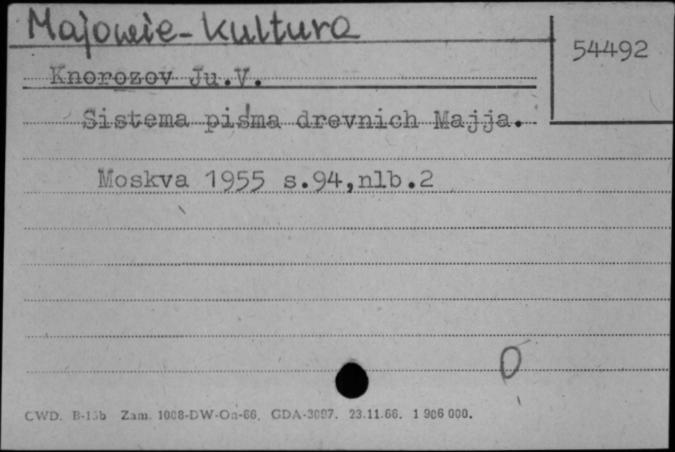 Majowie-kultura
54492
Knorozov Ju.V.
Sistema piśma drevnich Majja.
Moskva 1955 s.94,nlb.2
O
CWD. B-15b Zam. 1008-DW-On-66. GDA-3097. 23.11.66. 1 906 000.